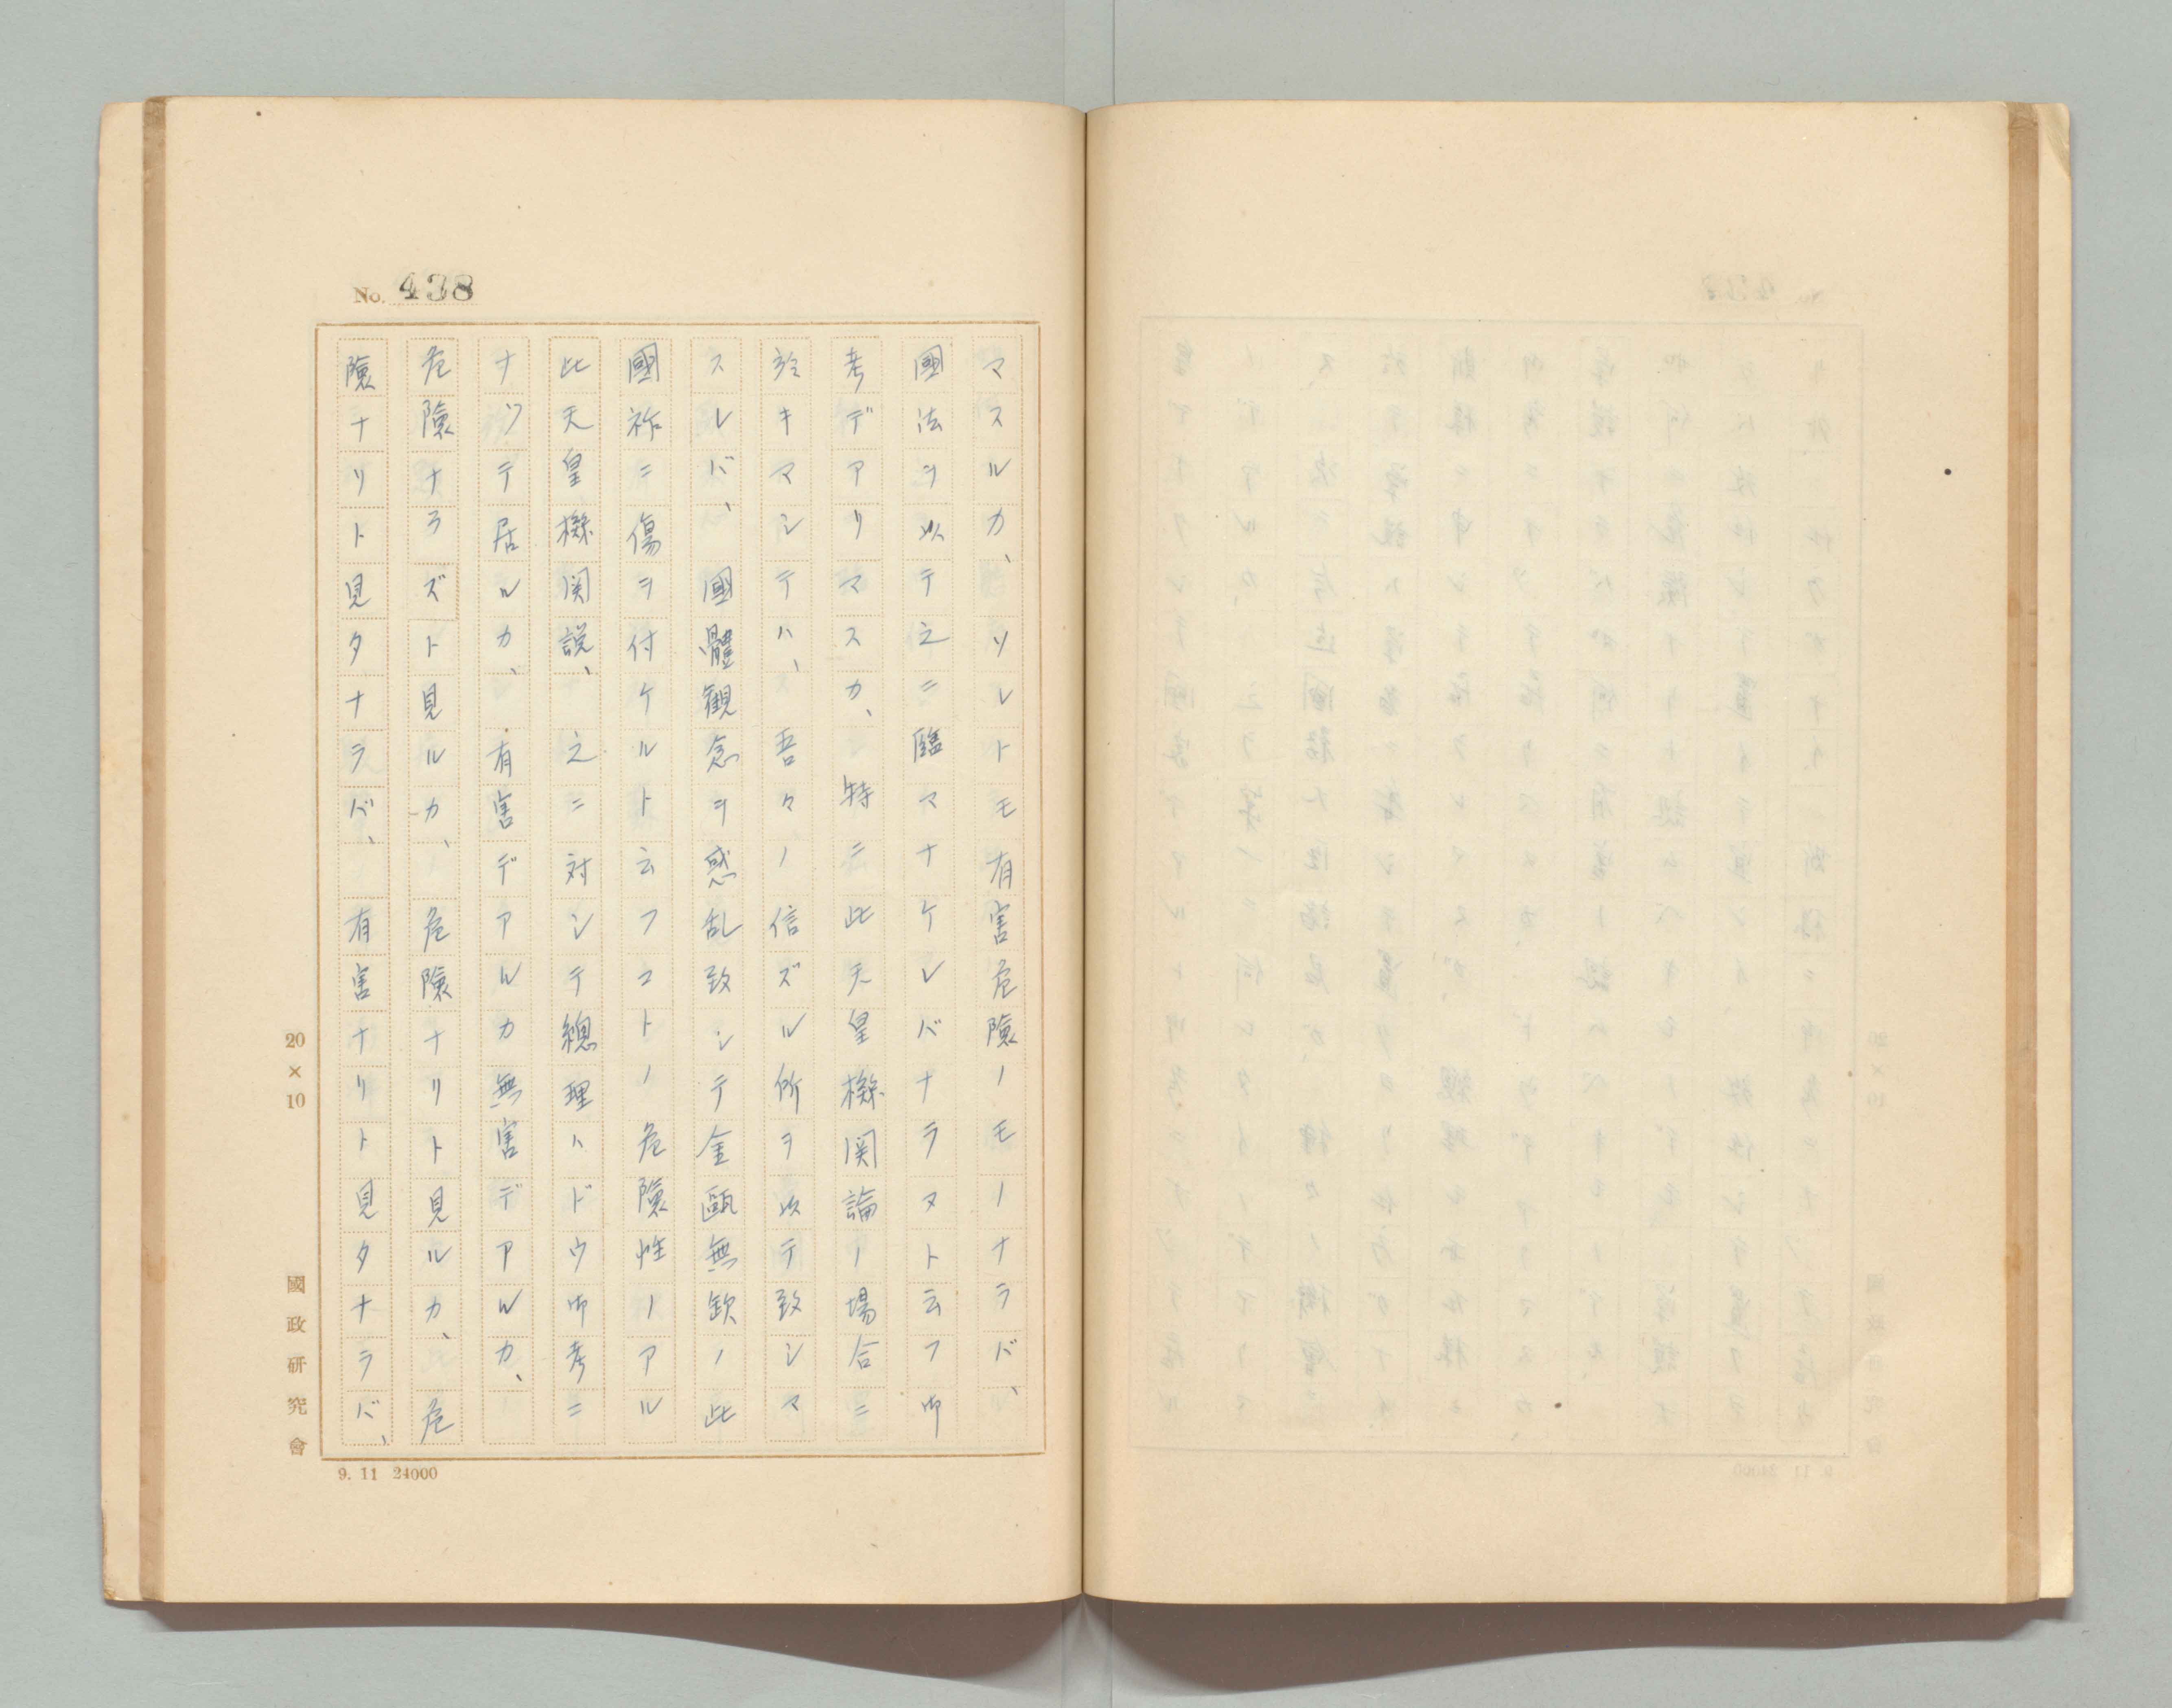 No. 438
マスルカ、ソレトモ有害危險ノモノナラバ、
國法ヲ以テ之ニ臨マナケレバナラヌト云フ御
考デアリマスカ、特ニ此天皇機関論ノ場合ニ
於キマシテハ、吾々ノ信ズル所ヲ以テ致シマ
スレバ、國體観念ヲ惑乱致シテ金甌無欽ノ此
國祚ニ傷ヲ付ケルト云フコトノ危險性ノアル
此天皇機関説、之ニ対シテ總理ハドウ御考ニ
ナツテ居ルカ、有害デアルカ無害デアルカ、
危險ナラズト見ルカ、危險ナリト見ルカ、危
險ナリト見タナラバ、有害ナリト見タナラバ、
20×10
國政研究會
9. 11 24000